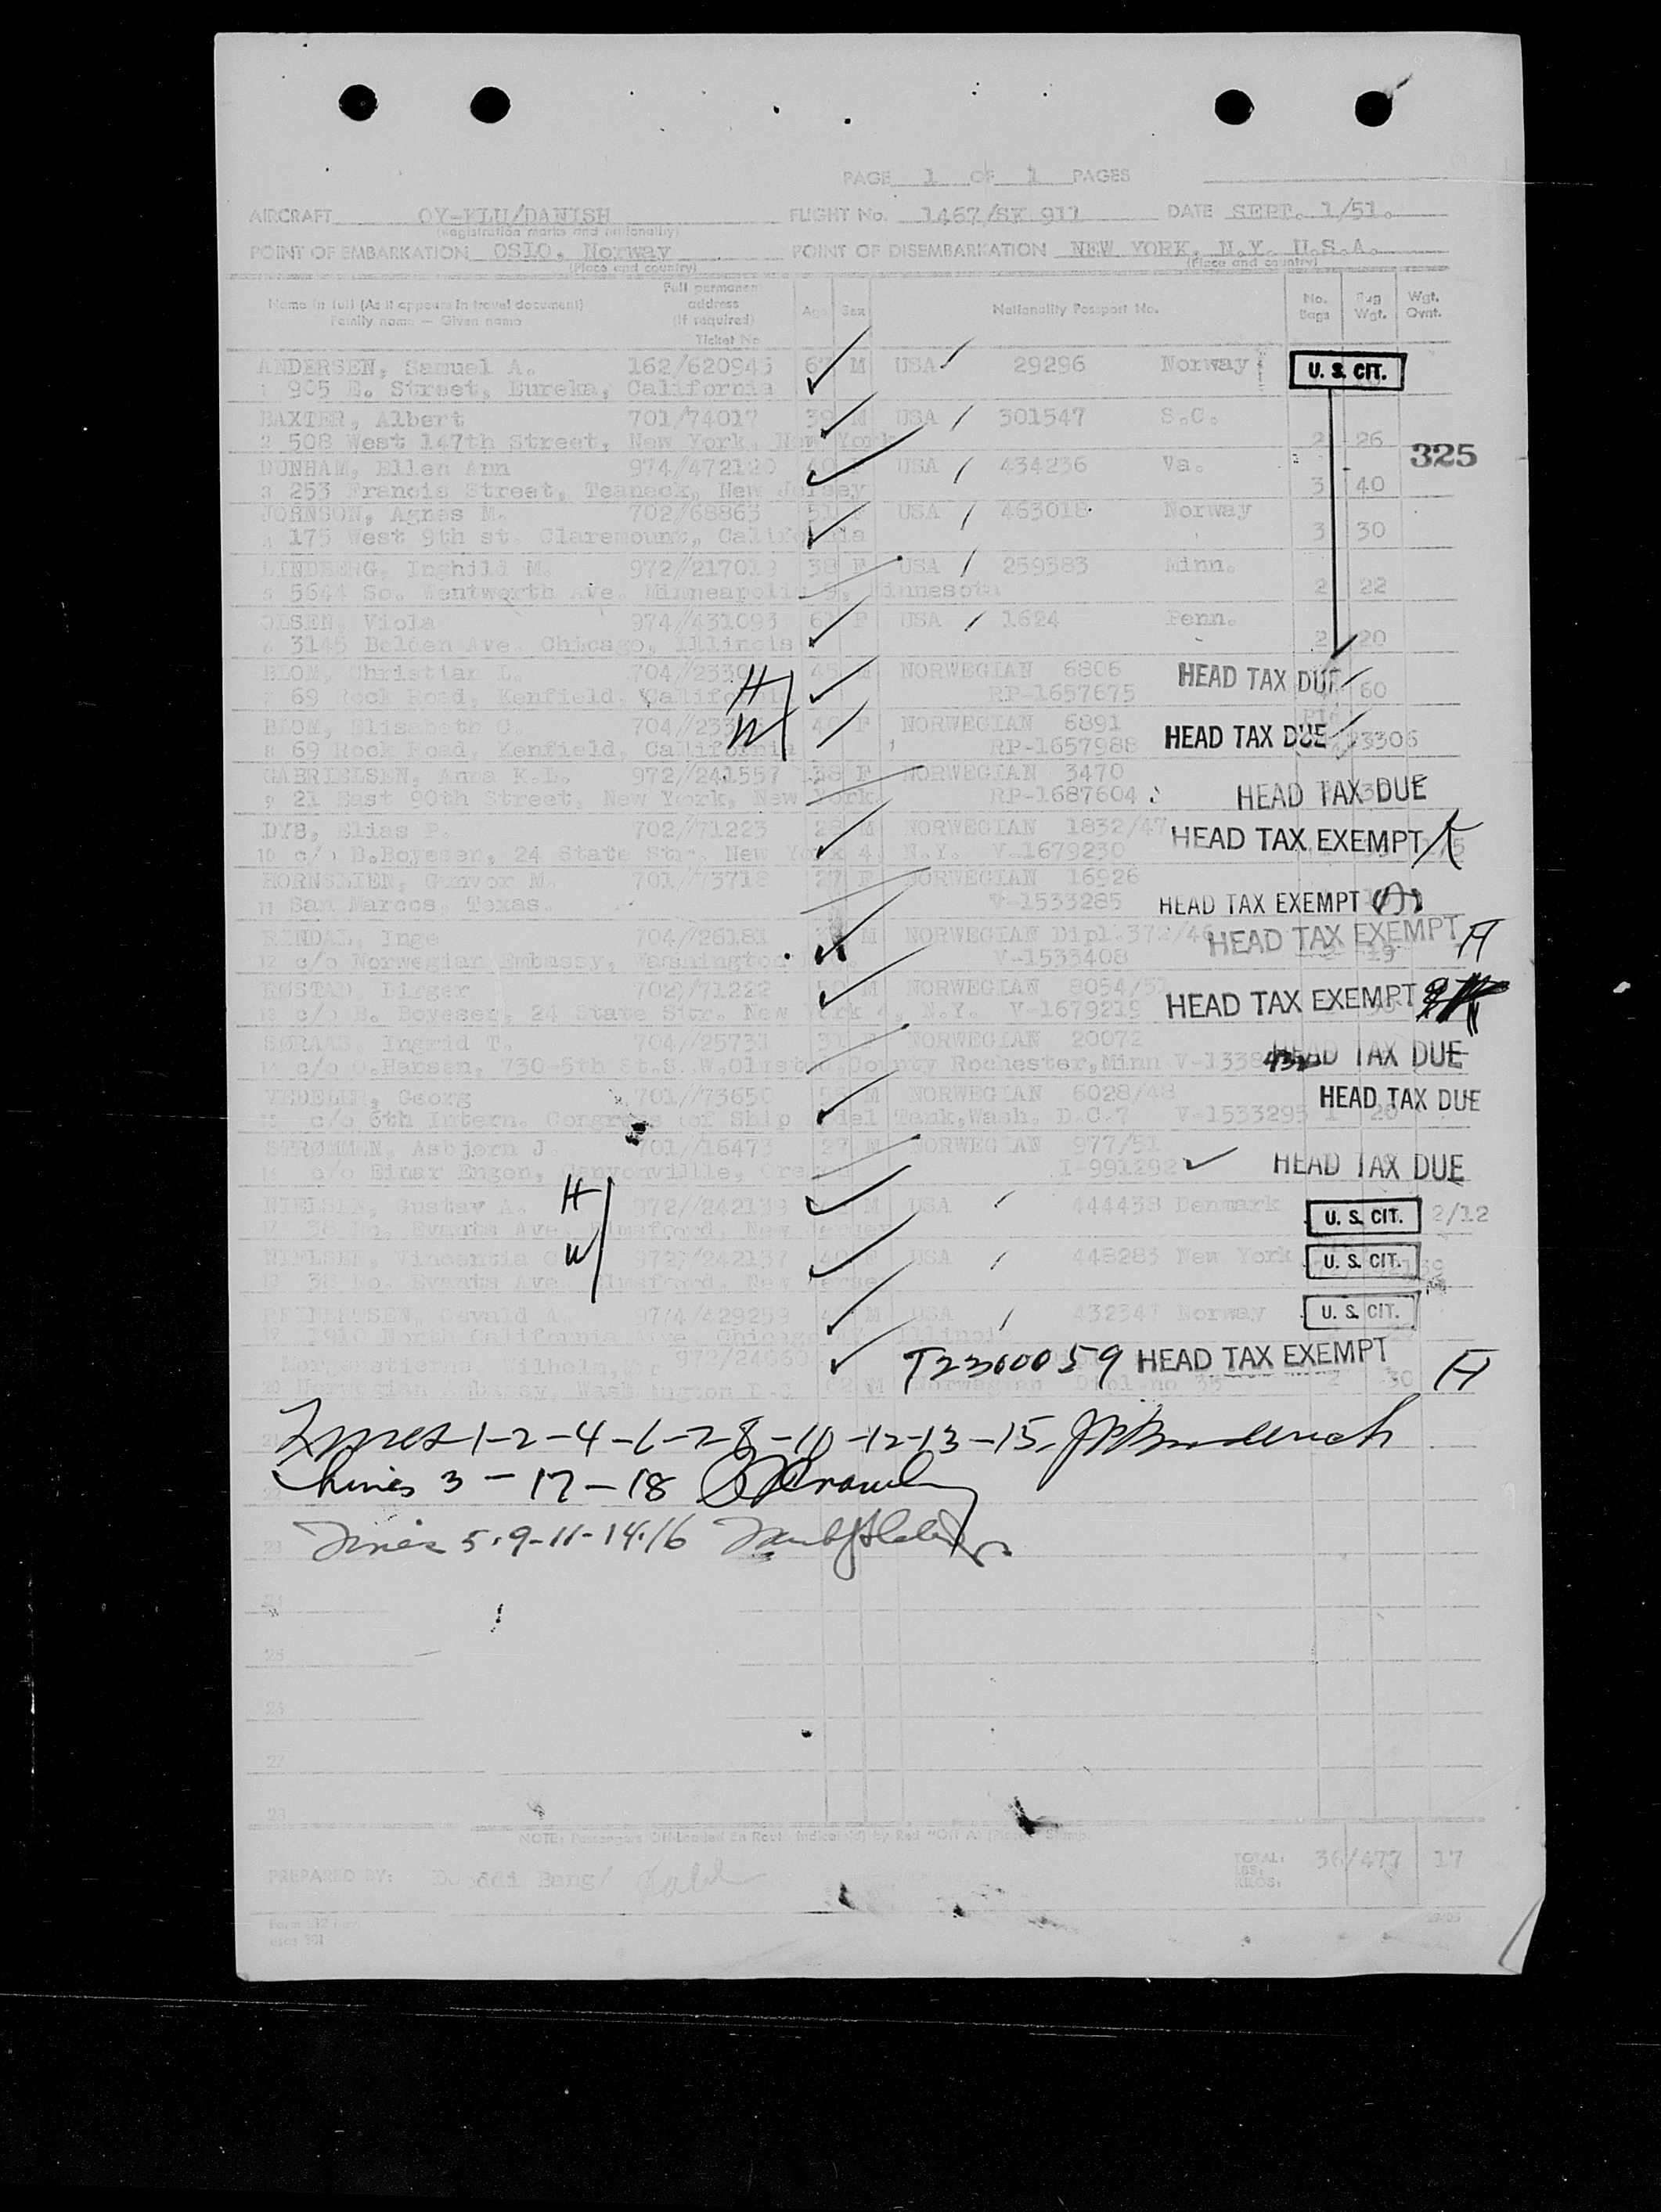 PAGE 1 OF 1 PAGES
AIRCRAFT OY-KLU/DANISH FLIGHT No. 1467/SK 911 DATE SEPT. 1/51.
(Registration marks and nationality)
POINT OF EMBARKATION OSLO, Norway POINT OF DISEMBARKATION NEW YORK, N.Y. U.S.A.
(Place and country) (Place and country)
Name in full (As it appears in travel document) Family name — Given name Full permanent address (if required) Ticket No Age Sex Nationality Passport No. No. Bags Bag Wgt. Wgt. Ovnt.
ANDERSEN, Samuel A. 162/620945 67 M USA 29296 Norway U. S. CIT.
1 905 E. Street, Eureka, California
BAXTER, Albert 701/74017 39 M USA 301547 S.C.
2 508 West 147th Street, New York, New York 2 26
325
DUNHAM, Ellen Ann 974/472120 40 USA 434236 Va.
3 253 Francis Street, Teaneck, New Jersey 3 40
JOHNSON, Agnes M. 702/68863 51 F USA 463018 Norway
4 175 West 9th st. Claremount, California 3 30
LINDBERG, Inghild M. 972/217019 38 F USA 259383 Minn.
5 5644 So. Wentworth Ave. Minneapolis 9, Minnesota 2 22
OLSEN, Viola 974/431093 61 F USA 1624 Penn.
6 3145 Belden Ave. Chicago, Illinois 2 20
BLOM, Christian L. 704//2330 H 45 M NORWEGIAN 6806 HEAD TAX DUE
7 69 Rock Road, Kenfield, California RP-1657675 60
BLOM, Elisabeth C. 704//233 W 40 F NORWEGIAN 6891
8 69 Rock Road, Kenfield, California RP-1657988 HEAD TAX DUE 23306
GABRIELSEN, Anna K.L. 972//241557 38 F NORWEGIAN 3470
9 21 East 90th Street, New York, New York RP-1687604 HEAD TAX DUE
DYB, Elias P. 702//71223 28 M NORWEGIAN 1832/47 HEAD TAX EXEMPT
10 c/o B.Boyesen, 24 State Str. New York 4, N.Y. V-1679230
HORNSLIEN, Gunvor M. 701//73718 27 F NORWEGIAN 16926
11 San Marcos, Texas. V-1533285 HEAD TAX EXEMPT
RINDAL, Inge 704//26181 M NORWEGIAN Dipl.372/46 HEAD TAX EXEMPT H
12 c/o Norwegian Embassy, Washington V-1533408 19
RØSTAD, Birger 702//71222 50 M NORWEGIAN 8054/51 HEAD TAX EXEMPT
13 c/o B. Boyesen, 24 State Str. New York 4, N.Y. V-1679219
SØRAAS, Ingrid T. 704//25731 31 F NORWEGIAN 20072
14 c/o O.Hansen, 730-5th St.S.W.Olmsted County Rochester, Minn V-1338 432 HEAD TAX DUE
VEDELER, Georg 701//73650 M NORWEGIAN 6028/48 HEAD TAX DUE
15 c/o 6th Intern. Congress of Ship Model Tank, Wash. D.C.7 V-1533295 1 20
STRØMMEN, Asbjorn J. 701//16473 27 M NORWEGIAN 977/51
16 c/o Einar Engen, Canyonville, Ore I-991292 HEAD TAX DUE
NIELSEN, Gustav A. H 972//242139 M USA 444438 Denmark U. S. CIT. 2/12
17 38 No. Evants Ave. Elmsford, New Jersey
NIELSEN, Vincentia C W 972//242137 40 F USA 448283 New York U. S. CIT.
18 38 No. Evants Ave. Elmsford, New Jersey
REINERTSEN, Osvald A. 974/429259 M USA 432347 Norway U. S. CIT.
19 1910 North California Ave Chicago Illinois
Morgenstierne Wilhelm, 972/24060 T2300059 HEAD TAX EXEMPT H
20 Norwegian Embassy, Washington D.C 62 M Norwegian Dipl.no 35 2 30
Lines 1-2-4-6-7-8-10-12-13-15.
Lines 3-17-18
Lines 5-9-11-14-16
23
24
25
26
27
28
NOTE: Passengers Off-Loaded En Route Indicated by Red "Off At (Place)" Stamp.
PREPARED BY: Bang/ TOTAL: LBS: KILOS: 36/477 17